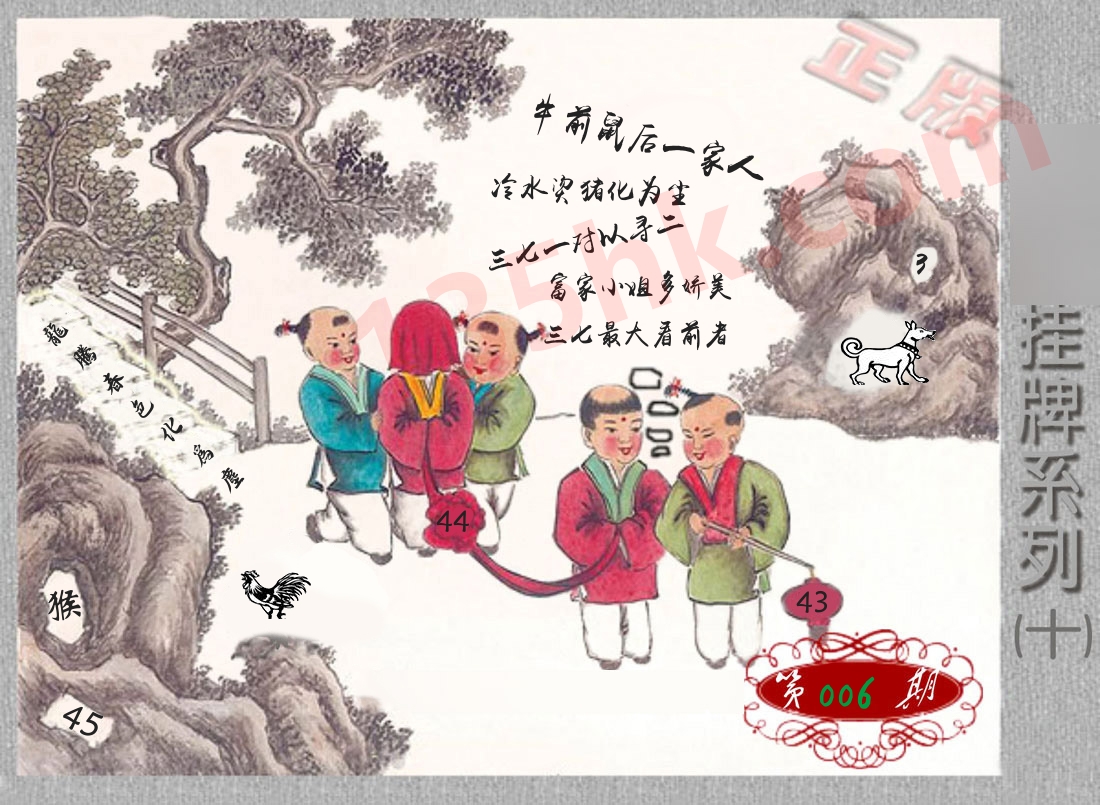 正版
牛前鼠后一家人
冷水烫猪化为尘
三七一对以寻二
富家小姐多娇美
三七最大看前者
125hk.com
3
龍騰春色化為塵
44
43
猴
45
第006期
挂牌系列(十)